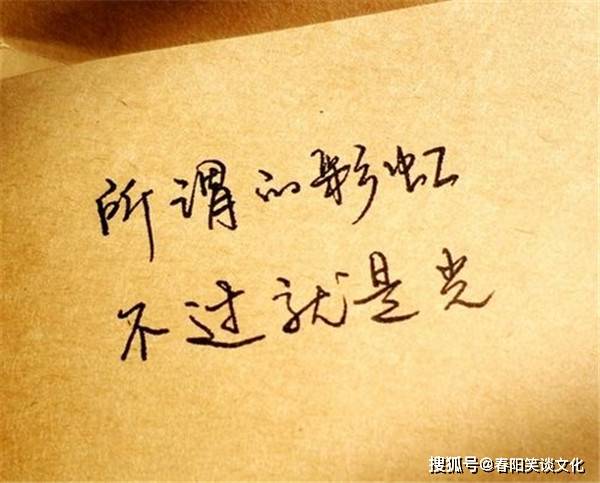 所谓的彩虹
不过就是光
搜狐号@春阳笑谈文化